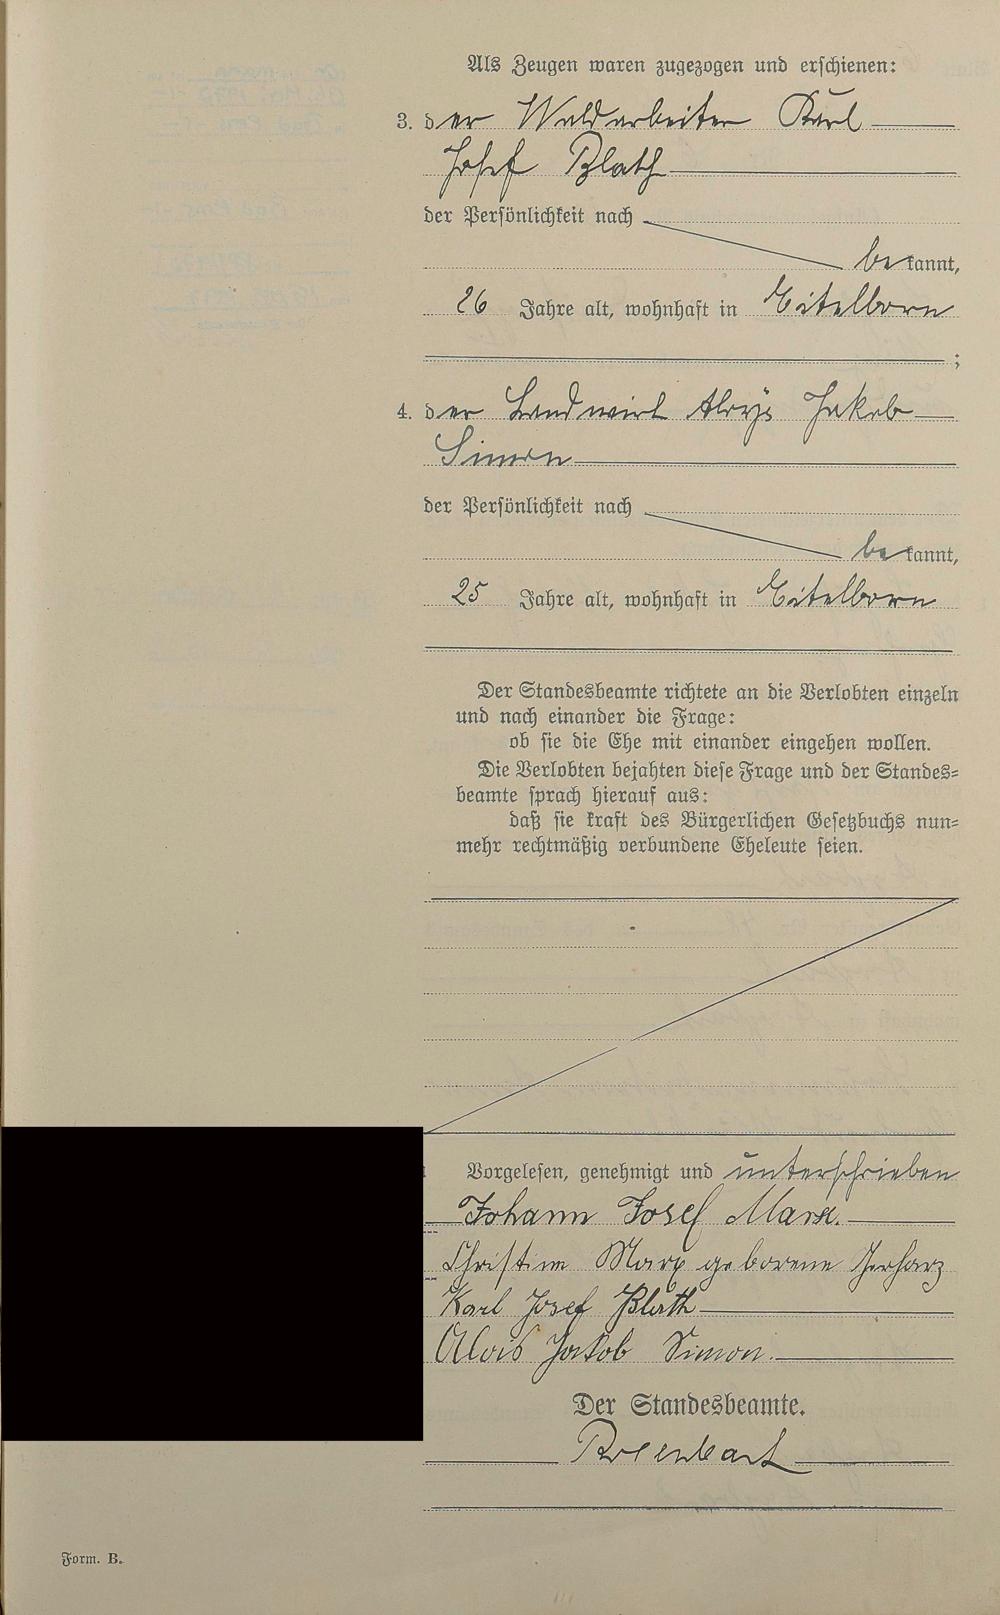 Als Zeugen waren zugezogen und erschienen:
3. der Waldarbeiter Karl
Josef Blath
der Persönlichkeit nach
bekannt,
26 Jahre alt, wohnhaft in Eitelborn
;
4. der Landwirt Aloys Jakob
Simon
der Persönlichkeit nach
bekannt,
25 Jahre alt, wohnhaft in Eitelborn
Der Standesbeamte richtete an die Verlobten einzeln
und nach einander die Frage:
ob sie die Ehe mit einander eingehen wollen.
Die Verlobten bejahten diese Frage und der Standes=
beamte sprach hierauf aus:
daß sie kraft des Bürgerlichen Gesetzbuchs nun=
mehr rechtmäßig verbundene Eheleute seien.
Vorgelesen, genehmigt und unterschrieben
Johann Josef Marx.
Christine Marx geborene Gerharz
Karl Josef Blath
Alois Jakob Simon.
Der Standesbeamte.
Form. B.